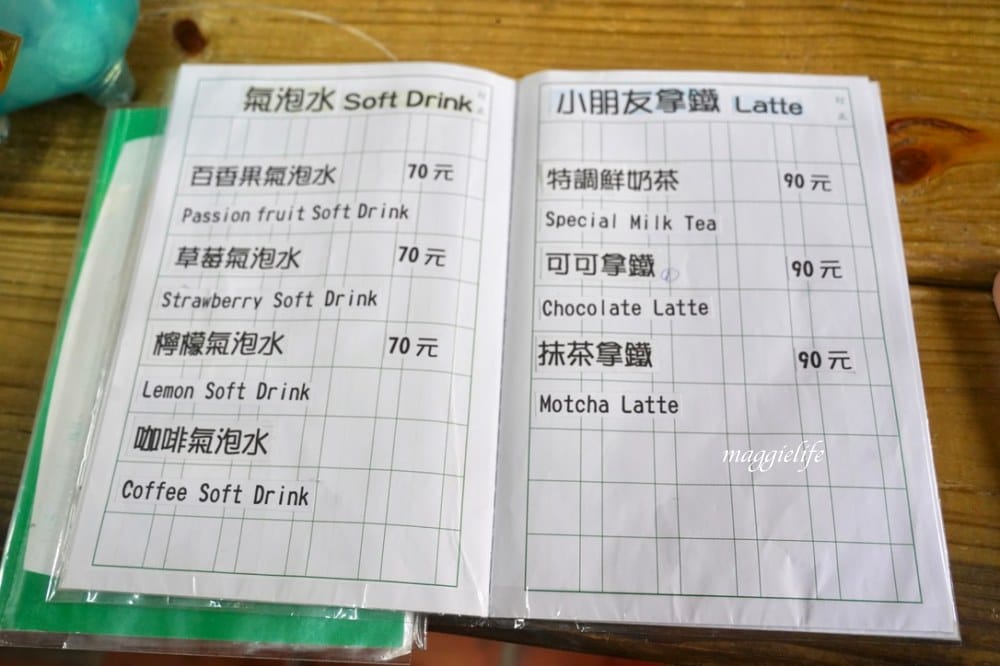 氣泡水 Soft Drink
百香果氣泡水 70 元
Passion fruit Soft Drink
草莓氣泡水 70 元
Strawberry Soft Drink
檸檬氣泡水 70 元
Lemon Soft Drink
咖啡氣泡水
Coffee Soft Drink
小朋友拿鐵 Latte
特調鮮奶茶 90 元
Special Milk Tea
可可拿鐵 90 元
Chocolate Latte
抹茶拿鐵 90 元
Motcha Latte
maggielife